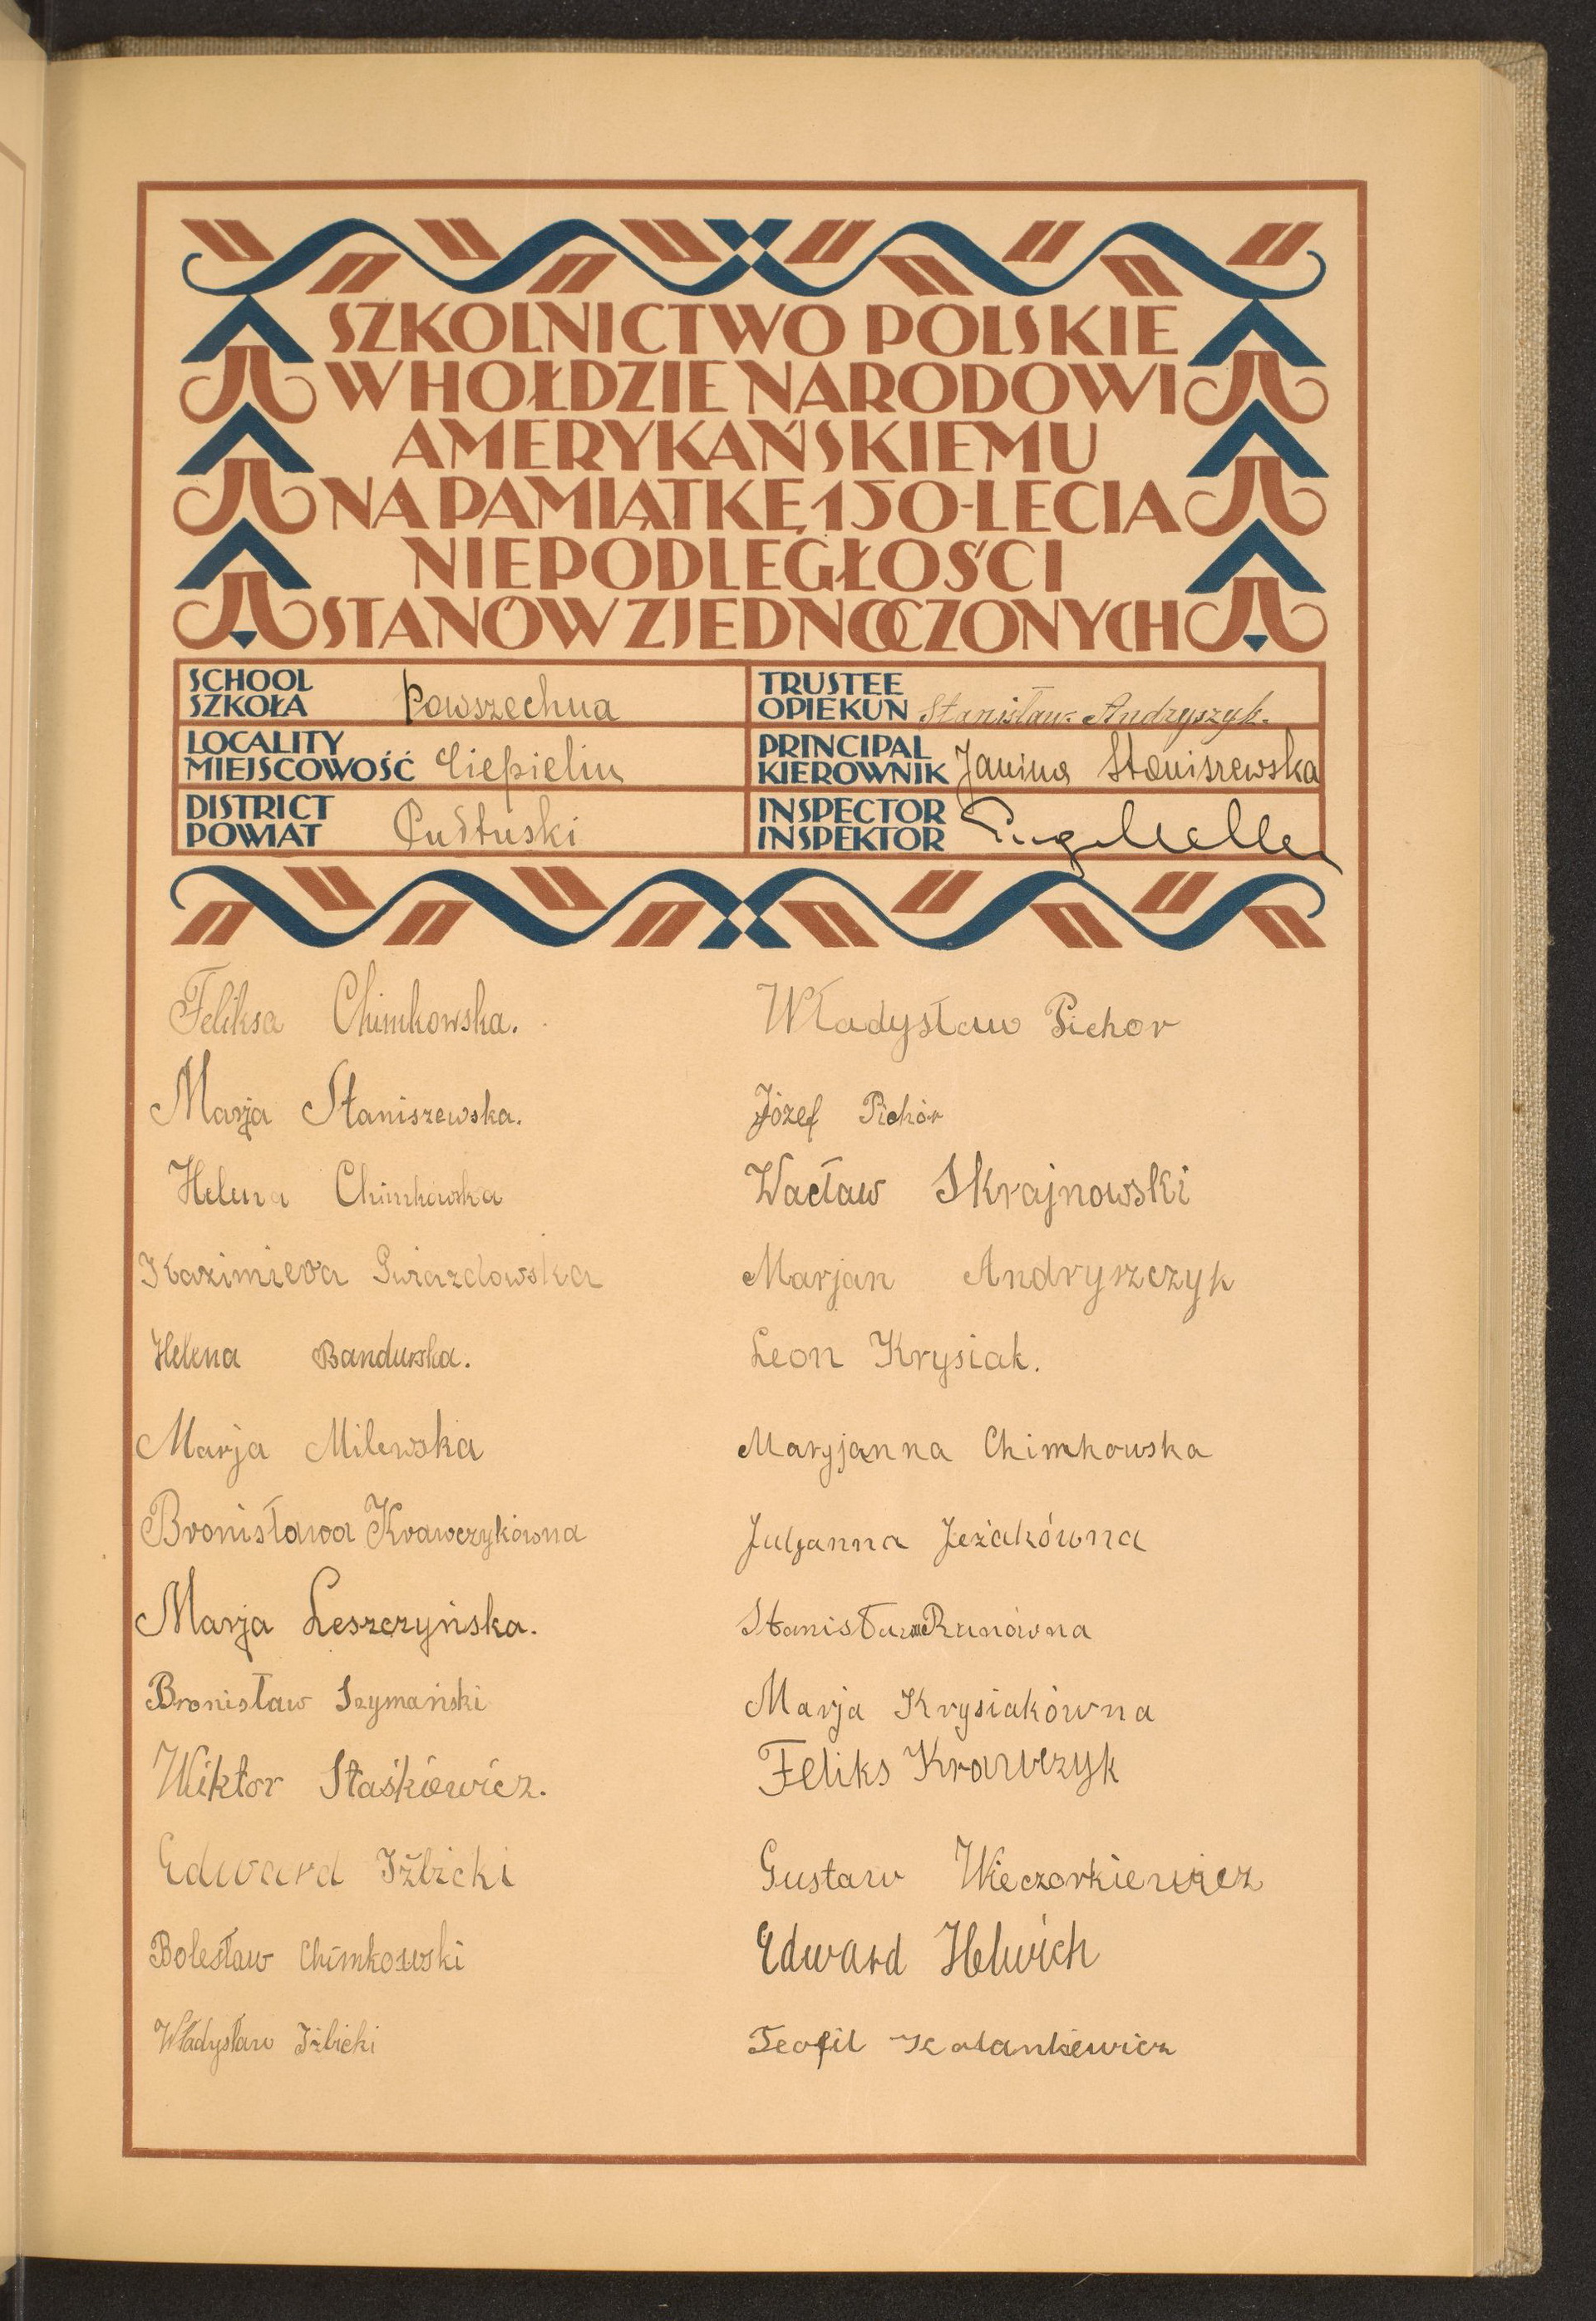 SZKOLNICTWO POLSKIE
W HOŁDZIE NARODOWI
AMERYKAŃSKIEMU
NA PAMIĄTKĘ 150-LECIA
NIEPODLEGŁOŚCI
STANÓW ZJEDNOCZONYCH
SCHOOL
SZKOŁA Powszechna
TRUSTEE
OPIEKUN Stanisław Andryszyk.
LOCALITY
MIEJSCOWOŚĆ Ciepielin
PRINCIPAL
KIEROWNIK Janina Staniszewska
DISTRICT
POWIAT Pułtuski
INSPECTOR
INSPEKTOR
Feliksa Chimkowska.
Marja Staniszewska.
Helena Chimkowska
Kazimiera Gwiazdowska
Helena Bandurska.
Marja Milewska
Bronisława Krawczykówna
Marja Leszczyńska.
Bronisław Szymański
Wiktor Staśkiewicz.
Edward Iżbicki
Bolesław Chimkowski
Władysław Iżbicki
Władysław Pichor
Józef Pichór
Wacław Skrajnowski
Marjan Andryszczyk
Leon Krysiak.
Maryjanna Chimkowska
Juljanna Jeżakówna
Stanisława Runówna
Marja Krysiakówna
Feliks Krawczyk
Gustaw Wieczorkiewicz
Edward Helwich
Teofil Kalankiewicz